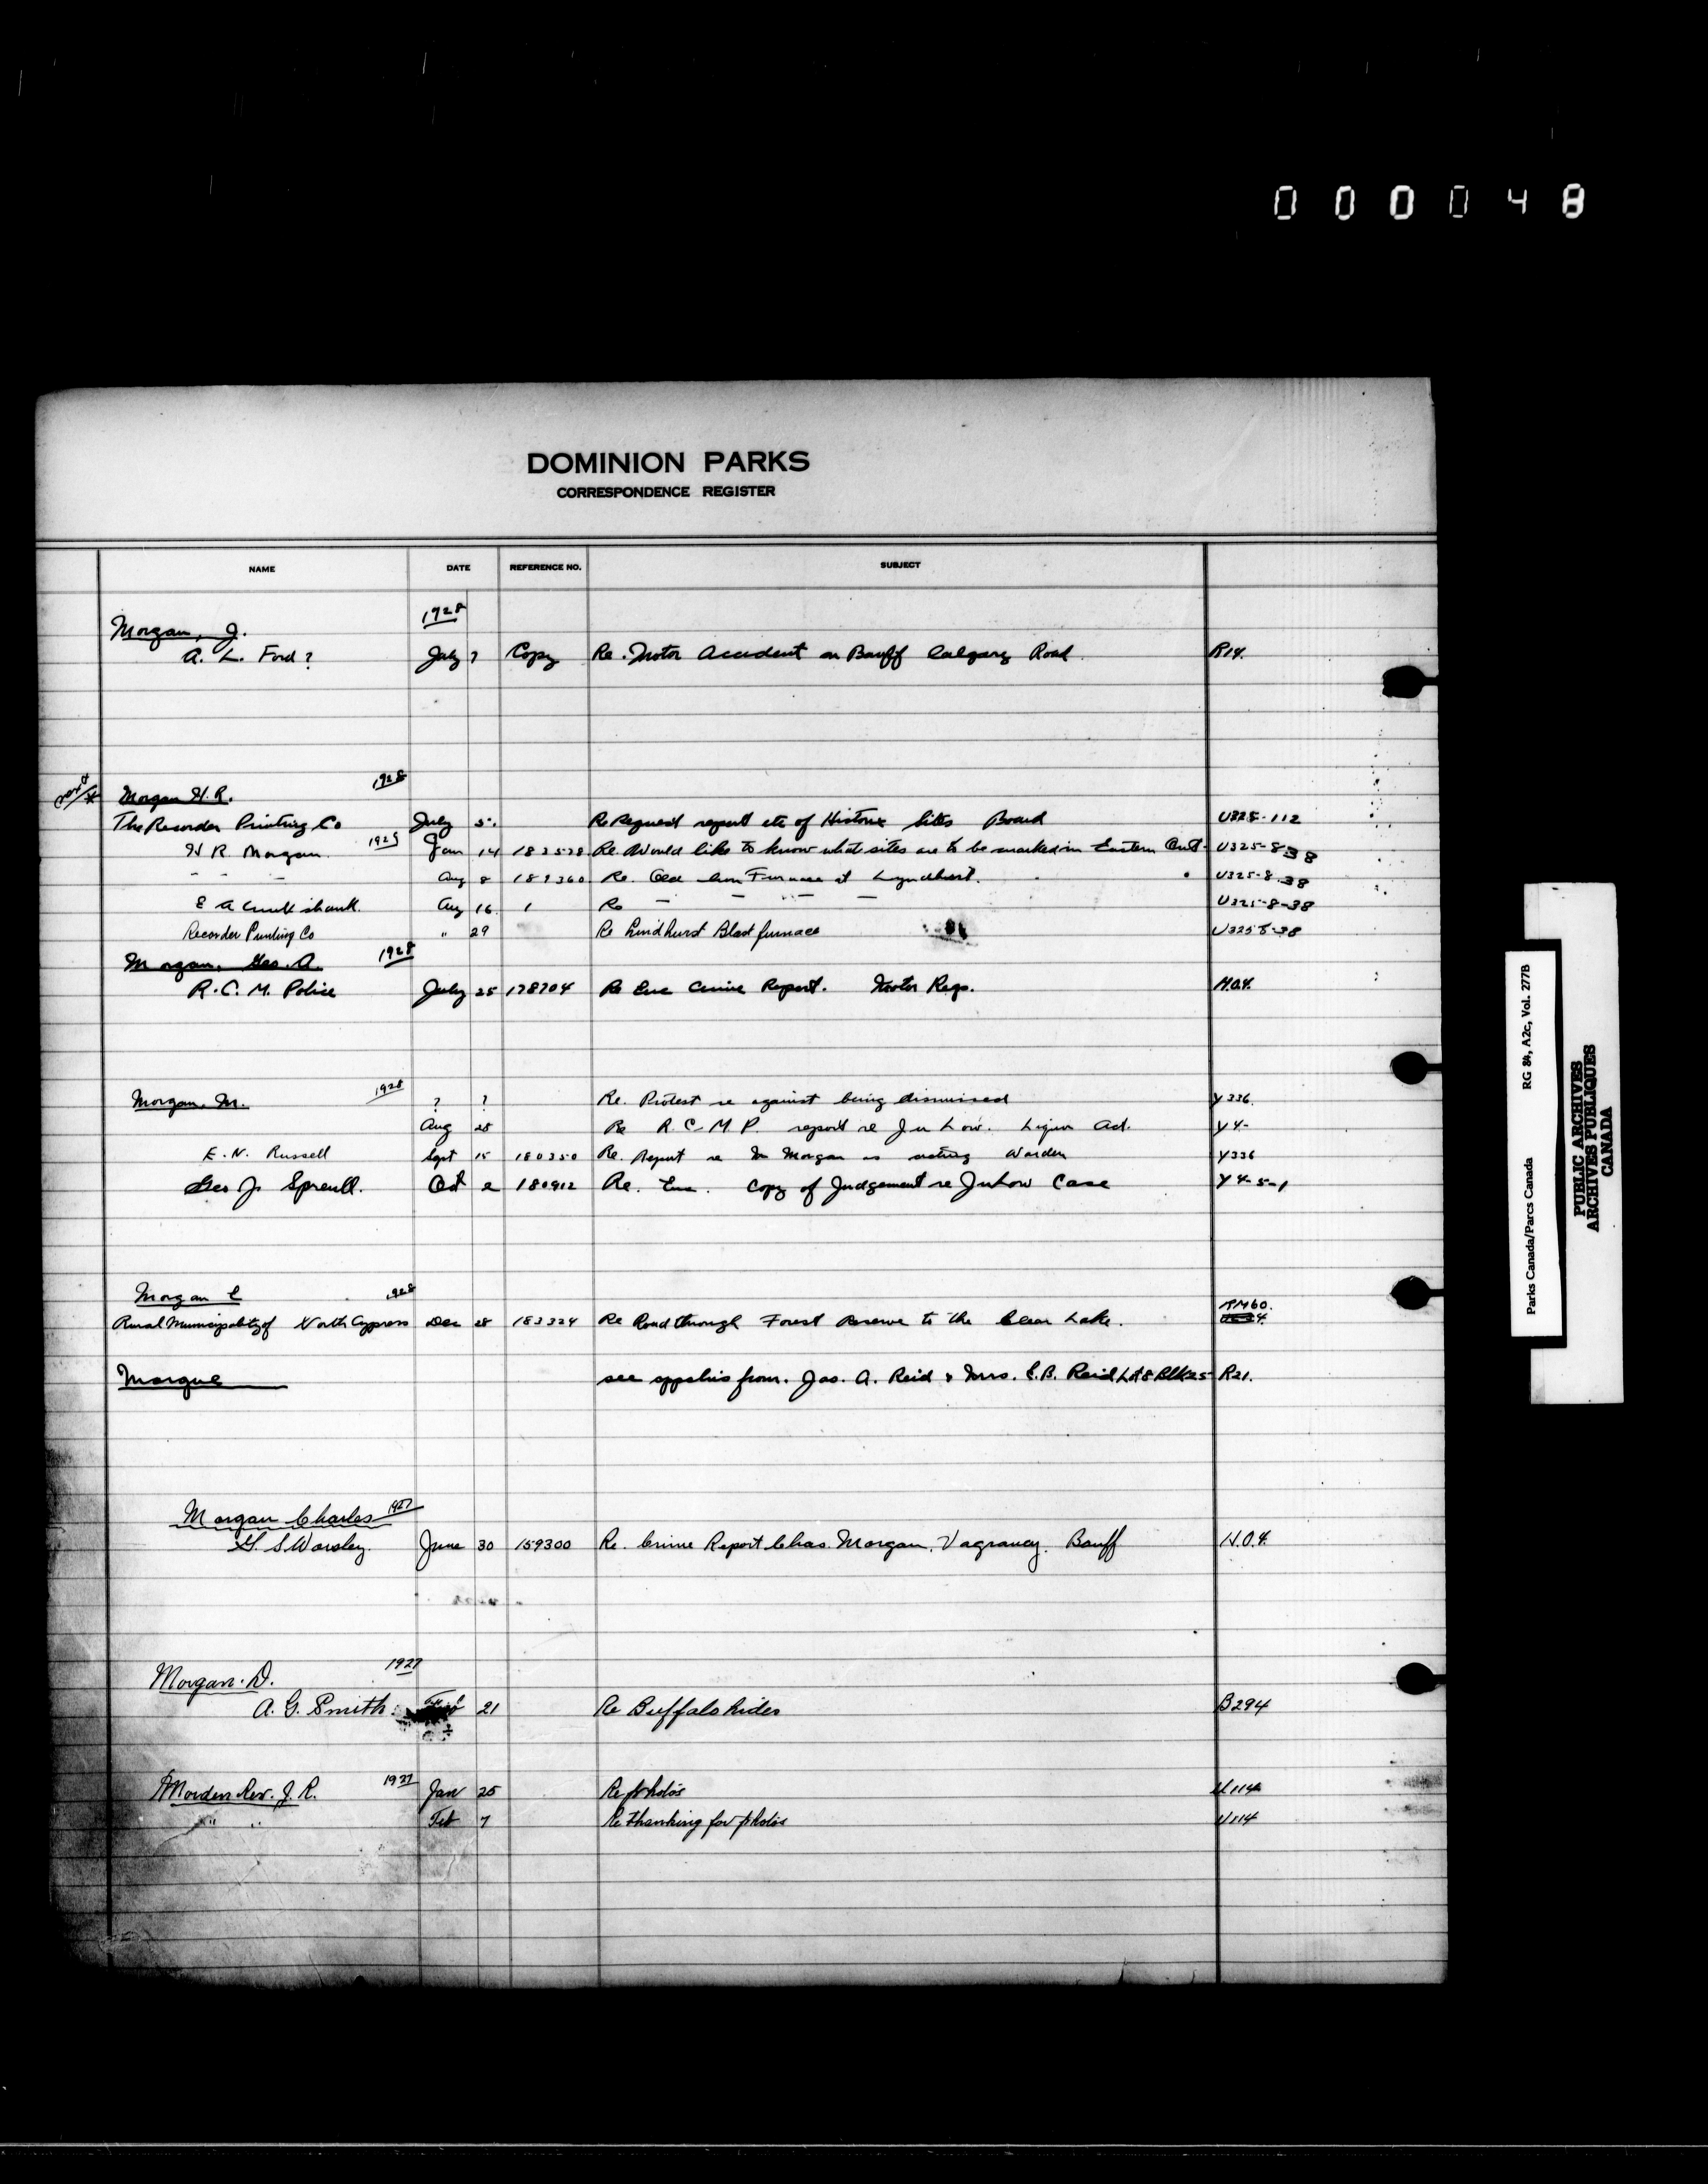 000048
DOMINION PARKS
CORRESPONDENCE REGISTER
NAME DATE REFERENCE NO. SUBJECT
1928
Morgan, J.
A. L. Ford? July 7 Copy Re. Motor Accident on Banff Calgary Road. R14.
Morgan H.R. 1928
The Recorder Printing Co July 5. Re Request report etc of Historic Sites Board U325-112
H R. Morgan. 1929 Jan 14 183578 Re. Would like to know what sites are to be marked in Eastern Ont. U325-8-38
- - - Aug 8 189360 Re. Old Iron Furnace at Lyndhurst. U325-8-38
E A Cruikshank. Aug 16 1 Re - - - - U325-8-38
Recorder Printing Co " 29 Re Lindhurst Blast furnace U325-8-38
Morgan, Geo. A. 1928
R.C.M. Police July 25 178704 Re Enc Crime Report. Motor Regs. H.O.4.
Morgan, M. 1928 ? ? Re. Protest re against being dismissed Y336.
Aug 28 Re R.C.M.P. report re Liquor Act. Y4-
E. N. Russell Sept 15 180350 Re. Report re M Morgan as acting Warden Y336
Geo J. Sproull. Oct 2 180912 Re. Enc. Copy of Judgement re Case Y4-5-1
Morgan C 1928
Rural Municipality of North Cypress Dec 28 183324 Re Road through Forest Reserve to the Clear Lake. RM60.
Morgue see applns from. Jas. A. Reid & Mrs. E.B. Reid Lot 8 Blk 25 R21.
Morgan Charles 1927
G. S Worsley. June 30 159300 Re. Crime Report Chas. Morgan, Vagrancy. Banff H.O.4.
Morgan. D. 1927
A. G. Smith. Feb 21 Re Buffalo hides B294
Morden Rev. J. R. 1927 Jan 25 Re photos U114
" " Feb 7 Re thanking for photos U114
Parks Canada/Parcs Canada RG 84, A2c, Vol. 2778
PUBLIC ARCHIVES
ARCHIVES PUBLIQUES
CANADA